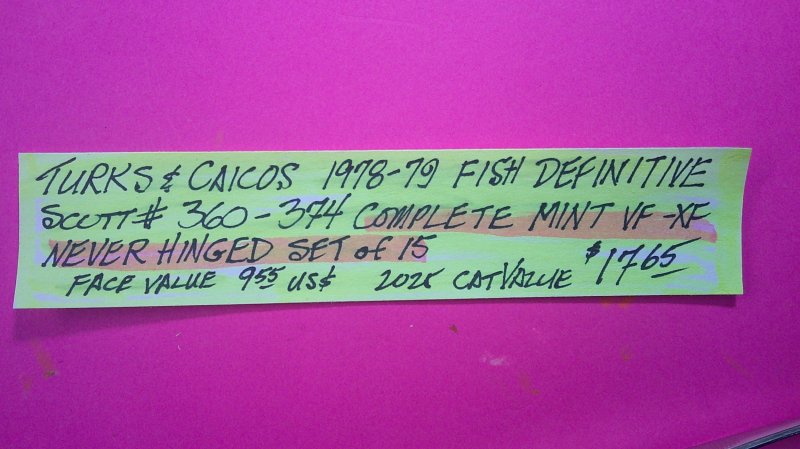 TURKS & CAICOS 1978-79 FISH DEFINITIVE
SCOTT# 360-374 COMPLETE MINT VF-XF
NEVER HINGED SET of 15
FACE VALUE 9.55 US$ 2025 CAT VALUE $17.65